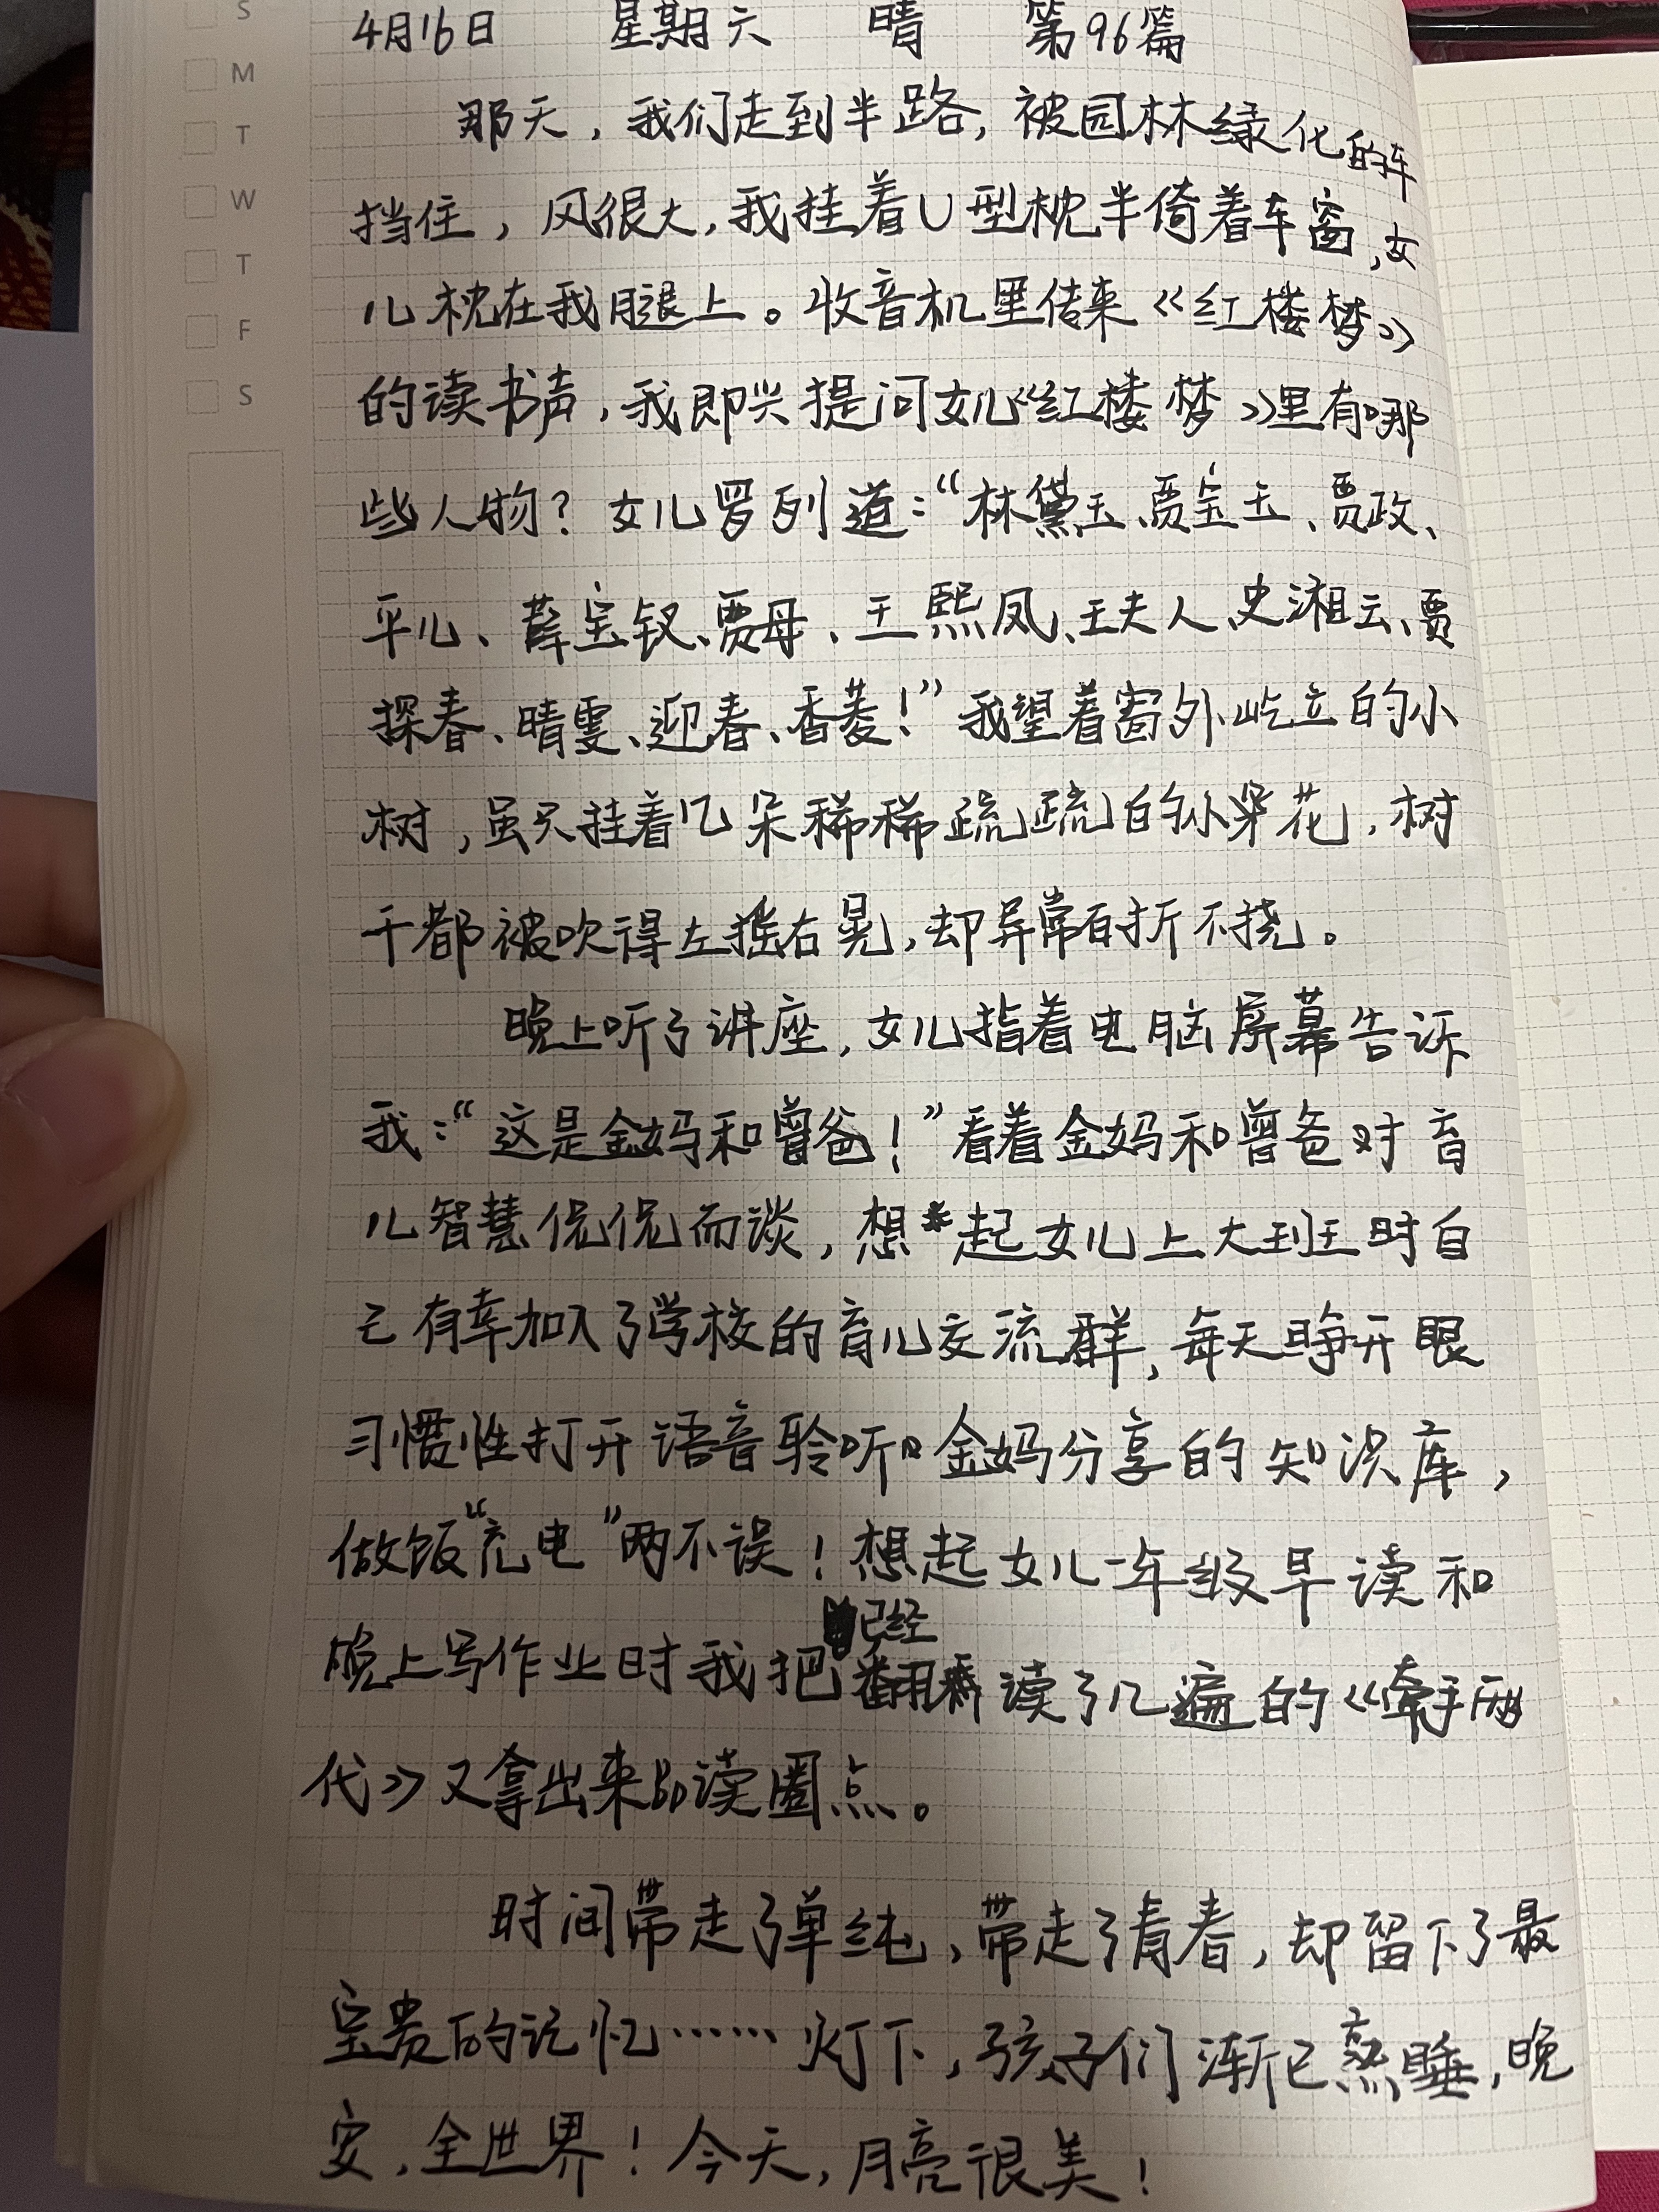 S
4月16日 星期六 晴 第96篇
M
那天，我们走到半路，被园林绿化的车
T
W
挡住，风很大，我挂着U型枕半倚着车窗，女
T
儿枕在我腿上。收音机里传来《红楼梦》
F
S
的读书声，我即兴提问女儿《红楼梦》里有哪
些人物？女儿罗列道：“林黛玉、贾宝玉、贾政、
平儿、薛宝钗、贾母、王熙凤、王夫人、史湘云、贾
探春、晴雯、迎春、香菱！”我望着窗外屹立的小
树，虽只挂着几朵稀稀疏疏的小朵花，树
干都被吹得左摇右晃，却异常百折不挠。
晚上听了讲座，女儿指着电脑屏幕告诉
我：“这是金妈和曾爸！”看着金妈和曾爸对育
儿智慧侃侃而谈，想起女儿上大班时自
己有幸加入了学校的育儿交流群，每天睁开眼
习惯性打开语音聆听金妈分享的知识库，
做饭“充电”两不误！想起女儿一年级早读和
晚上写作业时我把已经翻读了几遍的《牵手两
代》又拿出来品读圈点。
时间带走了单纯，带走了青春，却留下了最
宝贵的记忆……灯下，孩子们渐已熟睡，晚
安，全世界！今天，月亮很美！